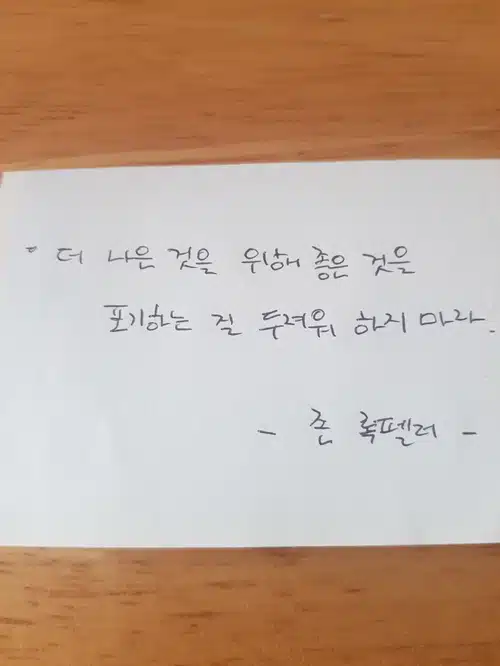 " 더 나은 것을 위해 좋은 것을
포기하는 걸 두려워 하지 마라.
- 존 록펠러 -